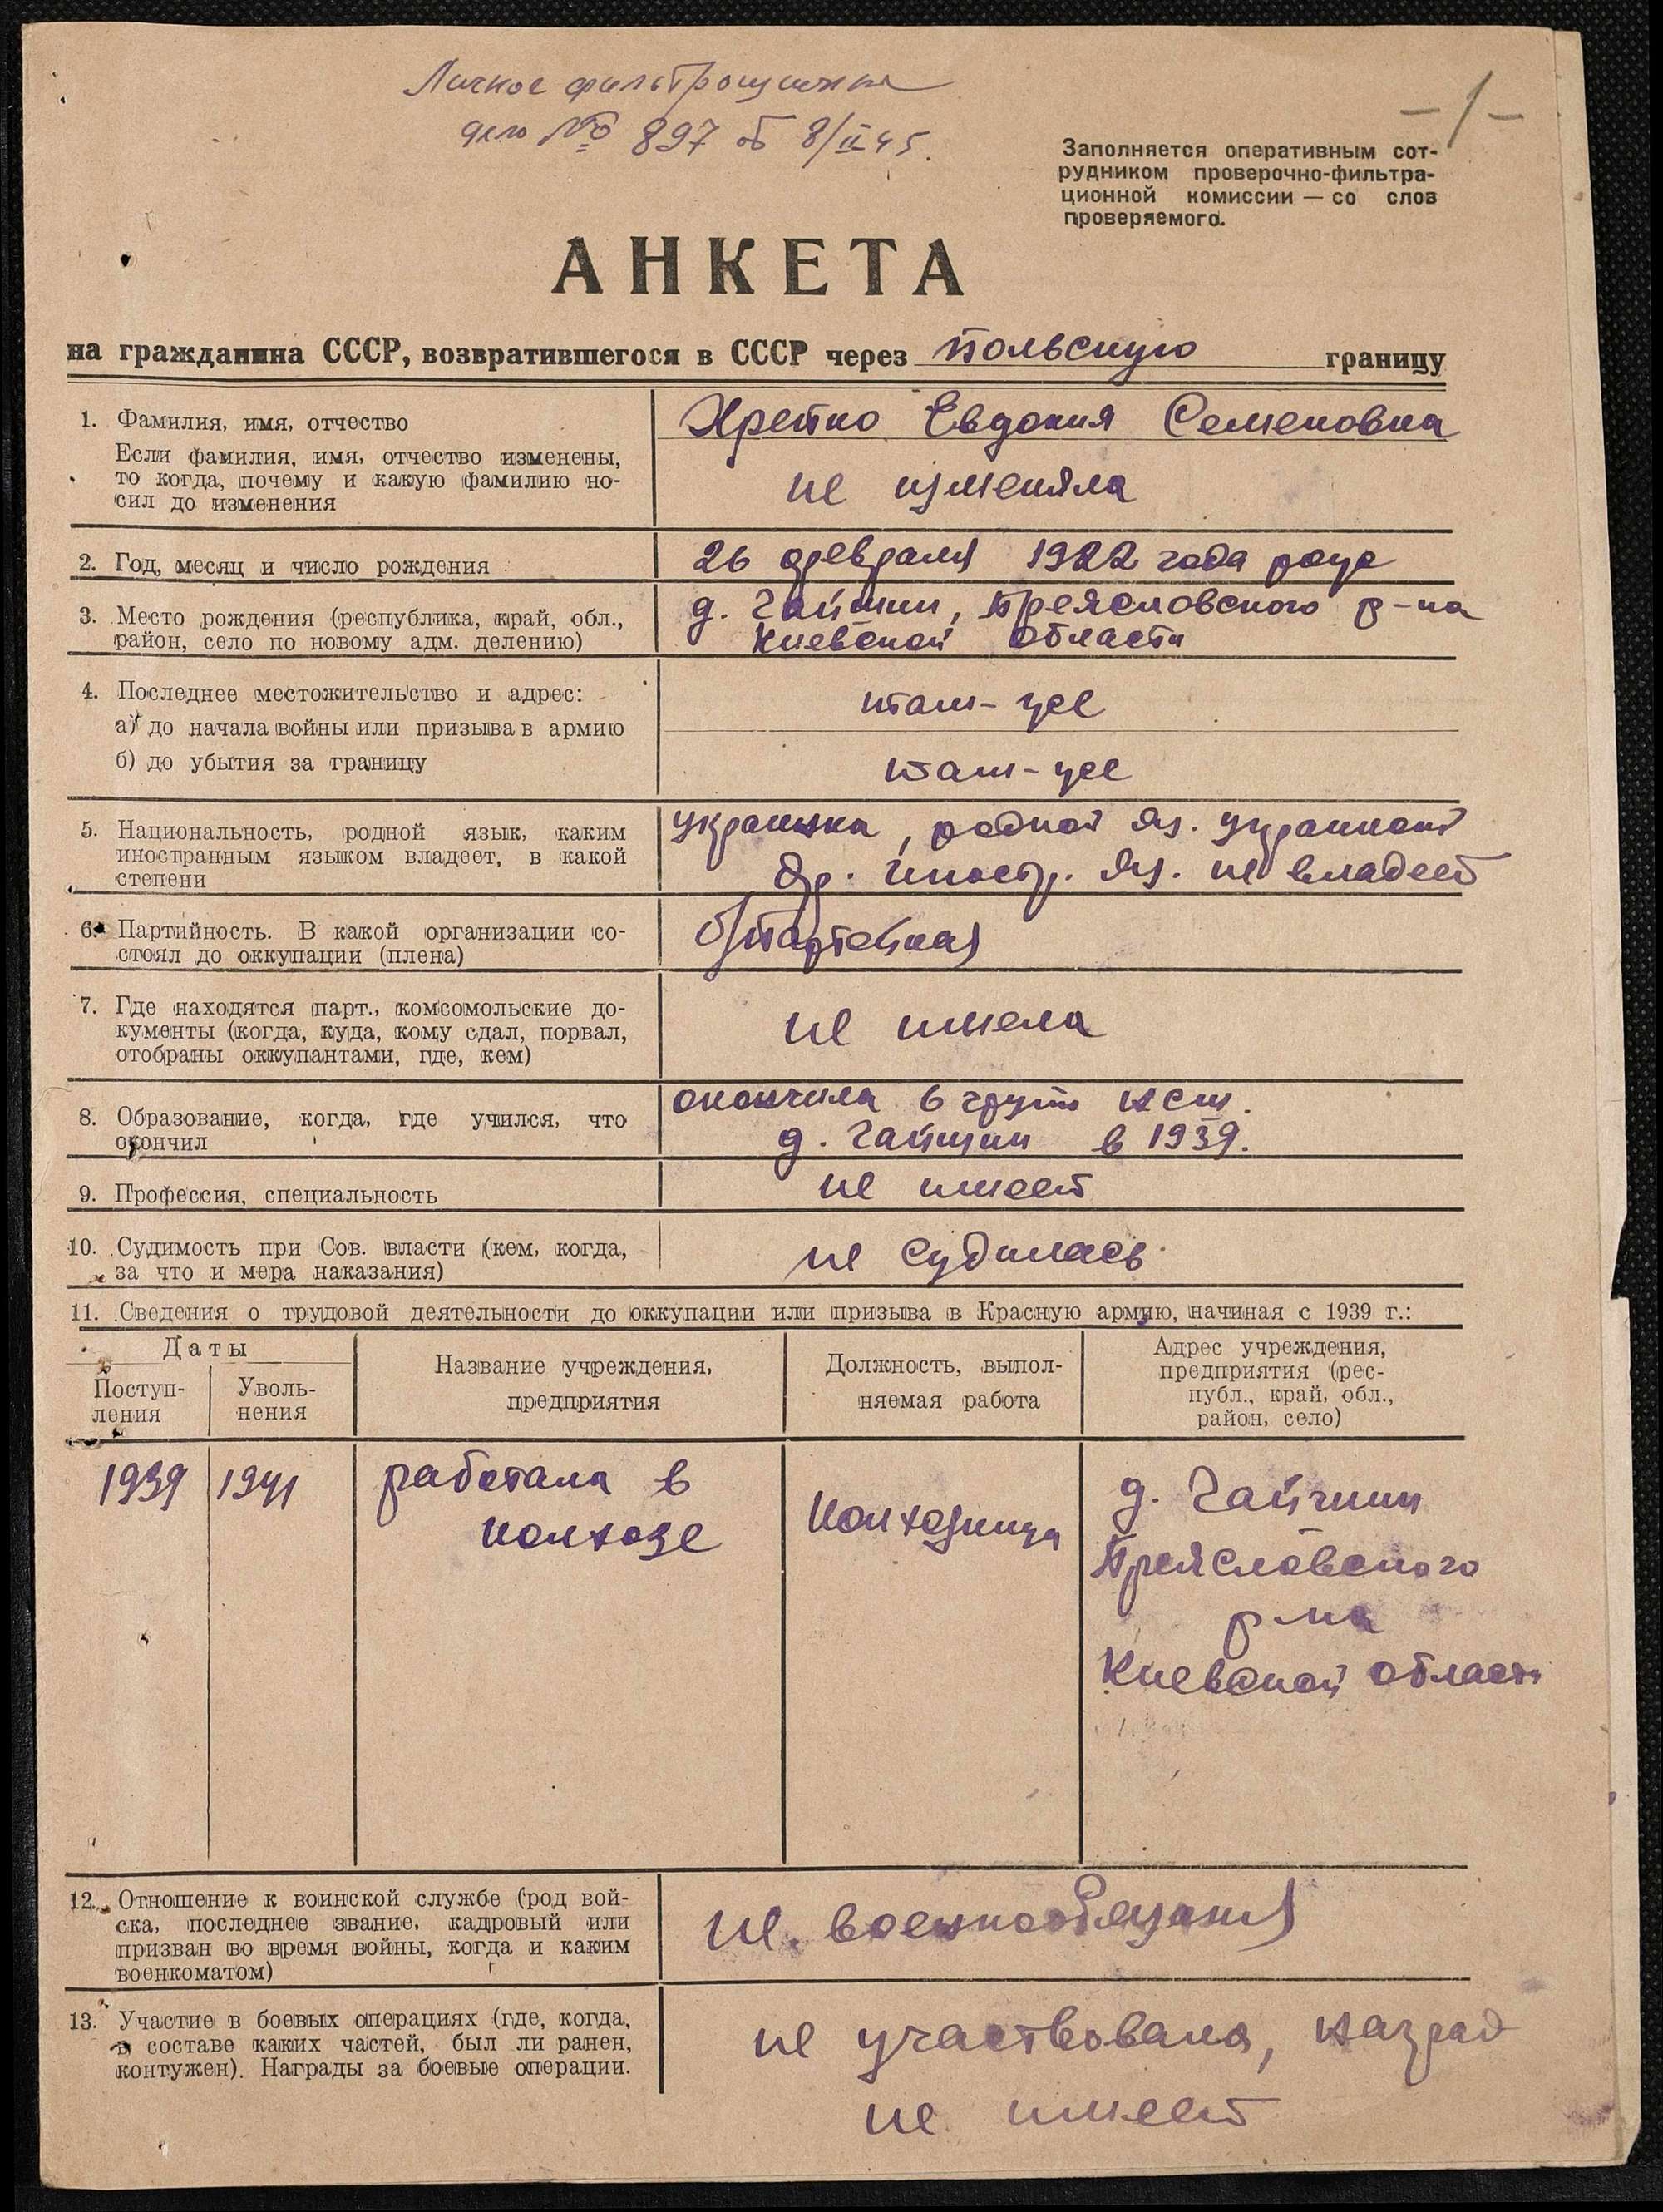 Личное фильтрационное
дело № 897 от 8/II 45.
– 1 –
Заполняется оперативным сот-
рудником проверочно-фильтра-
ционной комиссии — со слов
проверяемого.
АНКЕТА
на гражданина СССР, возвратившегося в СССР через польскую границу
1. Фамилия, имя, отчество
Евдокия Семеновна
Если фамилия, имя, отчество изменены,
то когда, почему и какую фамилию но-
сил до изменения
не изменяла
2. Год, месяц и число рождения
26 февраля 1922 года
3. Место рождения (республика, край, обл.,
район, село по новому адм. делению)
д. Гайшин, Преясловского р-на
Киевской области
4. Последнее местожительство и адрес:
а) до начала войны или призыва в армию
там-же
б) до убытия за границу
там-же
5. Национальность, родной язык, каким
иностранным языком владеет, в какой
степени
украинка, родной яз. украинский
др. иностр. яз. не владеет
6. Партийность. В какой организации со-
стоял до оккупации (плена)
б/партейная
7. Где находятся парт., комсомольские до-
кументы (когда, куда, кому сдал, порвал,
отобраны оккупантами, где, кем)
не имела
8. Образование, когда, где учился, что
окончил
окончила 6 групп нсш.
д. Гайшин в 1939.
9. Профессия, специальность
не имеет
10. Судимость при Сов. власти (кем, когда,
за что и мера наказания)
не судилась
11. Сведения о трудовой деятельности до оккупации или призыва в Красную армию, начиная с 1939 г.:
Даты
Поступ-
ления
Уволь-
нения
Название учреждения,
предприятия
Должность, выпол-
няемая работа
Адрес учреждения,
предприятия (рес-
публ., край, обл.,
район, село)
1939
1941
работала в
колхозе
колхозница
д. Гайчин
Преясловского
р-на
Киевской области
12. Отношение к воинской службе (род вой-
ска, последнее звание, кадровый или
призван во время войны, когда и каким
военкоматом)
не военнообязаная
13. Участие в боевых операциях (где, когда,
в составе каких частей, был ли ранен,
контужен). Награды за боевые операции.
не участвовала, наград
не имеет